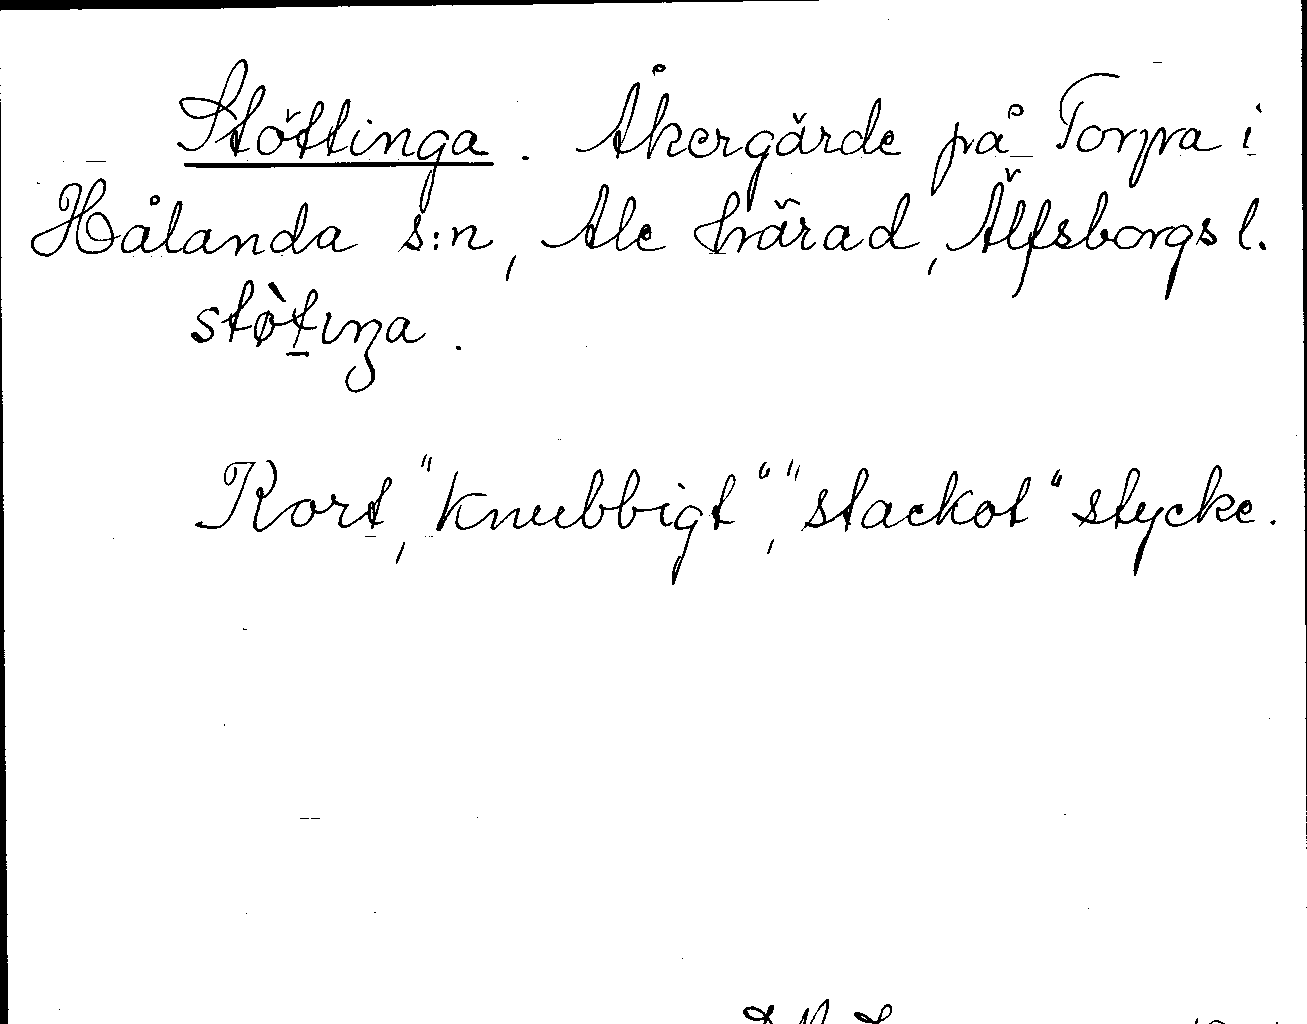 Stöttinga. Åkergärde på Torpa i
Hålanda s:n, Ale härad, Älfsborgs l.
støt̠ıŋa.
Kort, "knubbigt", "stackot" stycke.